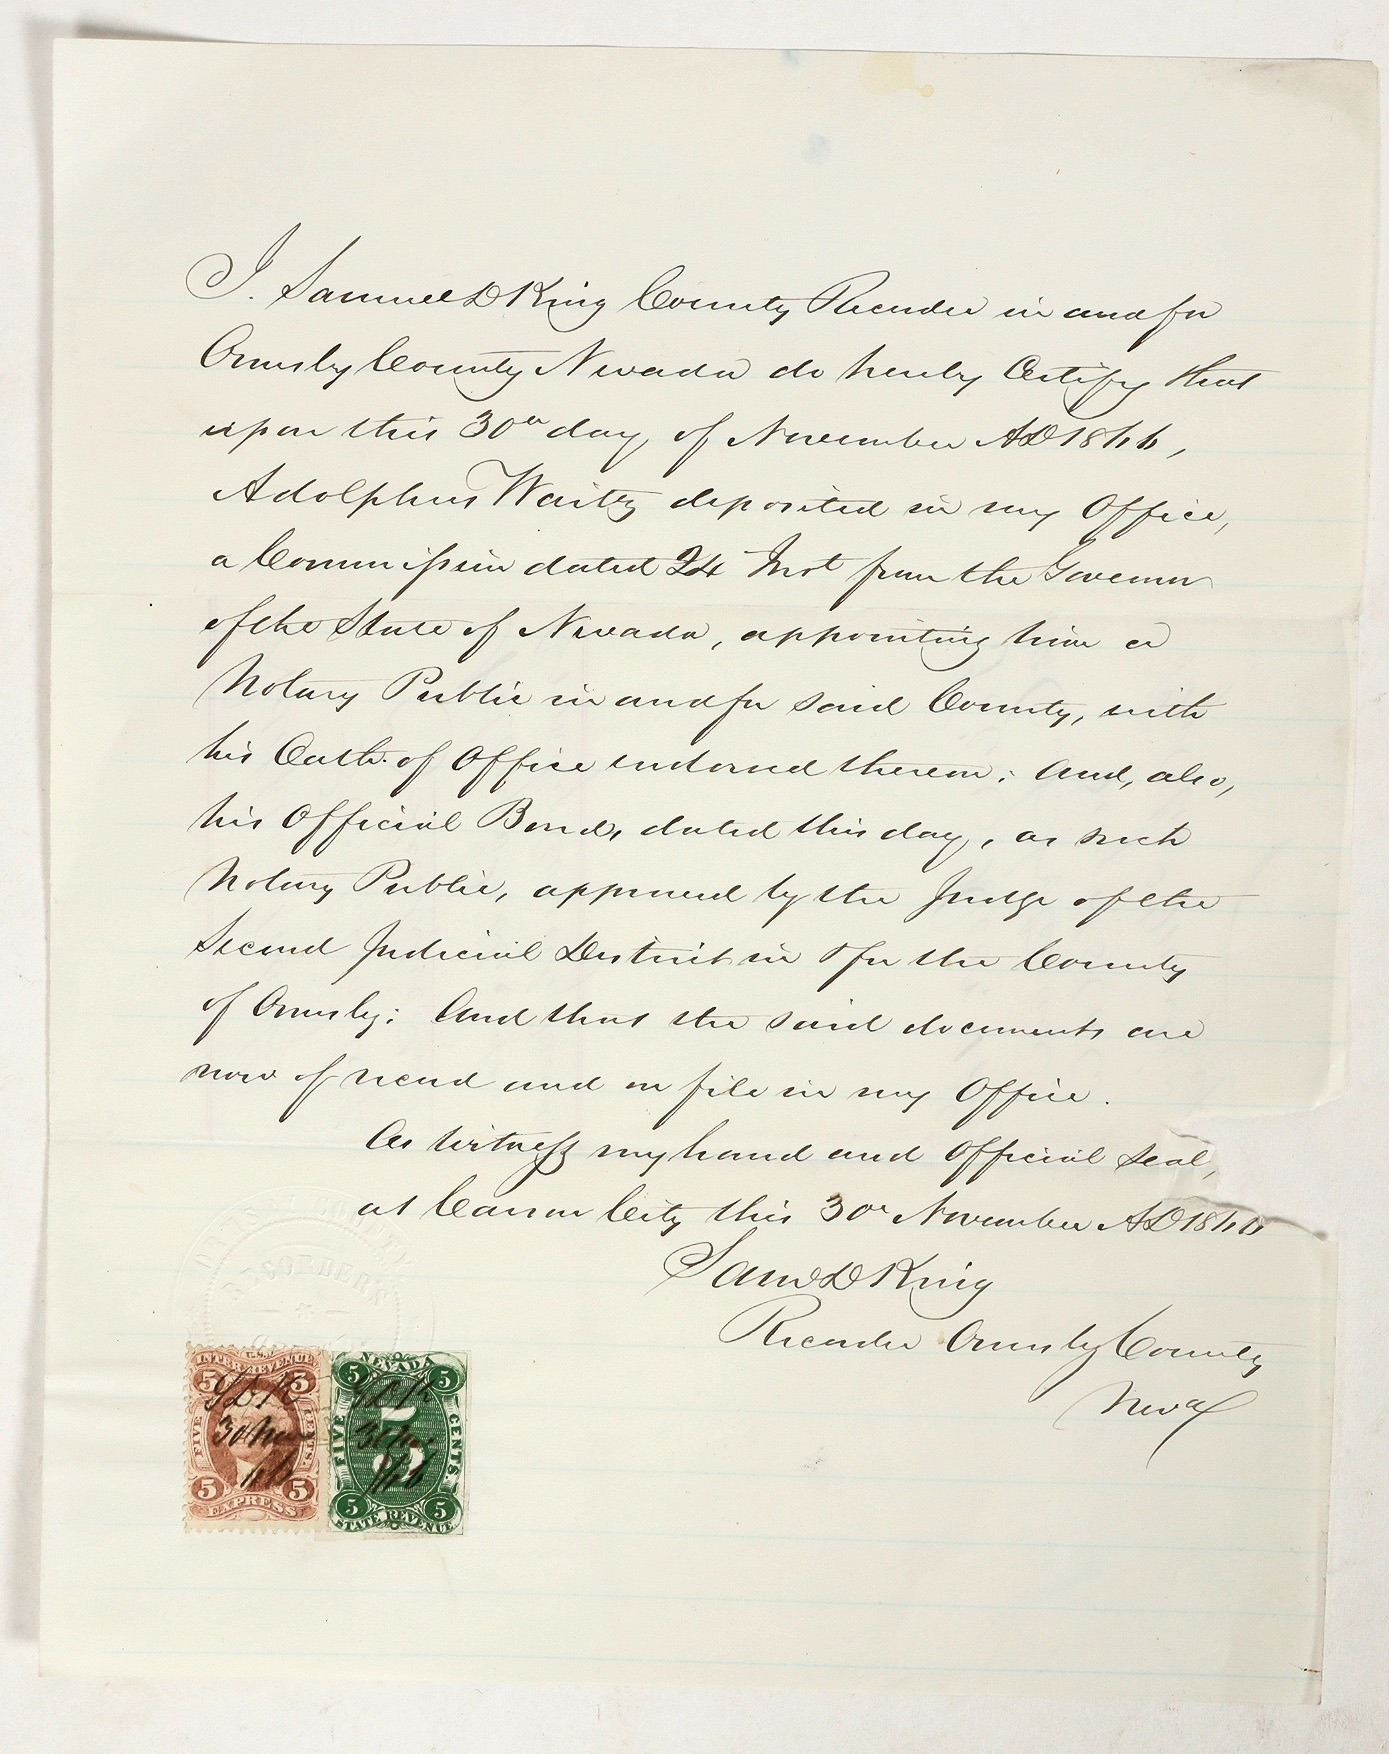 I. Samuel D King County Recorder in and for
Ormsby County Nevada do hereby Certify that
upon this 30th day, of November AD 1866,
Adolphus Waitz deposited in my Office,
a Commission dated 24 Inst from the Governor
of the State of Nevada, appointing him a
Notary Public in and for said County, with
his Oath of Office endorsed thereon; And, also,
his Official Bond, dated this day, as such
Notary Public, approved by the Judge of the
Second Judicial District in & for the County
of Ormsby; And that the said documents are
now of record and on file in my Office.
As witness my hand and Official Seal,
at Carson City this 30th November AD 1866
Saml D King
Recorder Ormsby County
Neva
ORMSBY COUNTY
RECORDER'S
U.S.
INTER. REVENUE
5 5
FIVE CENTS
5 5
EXPRESS
SDK
30 Nov
66
NEVADA
5 5
FIVE CENTS.
5
5 5
STATE REVENUE
SDK
30 Nov
66